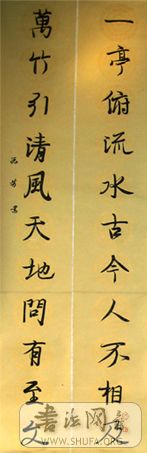 一亭俯流水古今人不相
萬竹引清風天地問有至文
書法网
WWW.SHUFA.COM